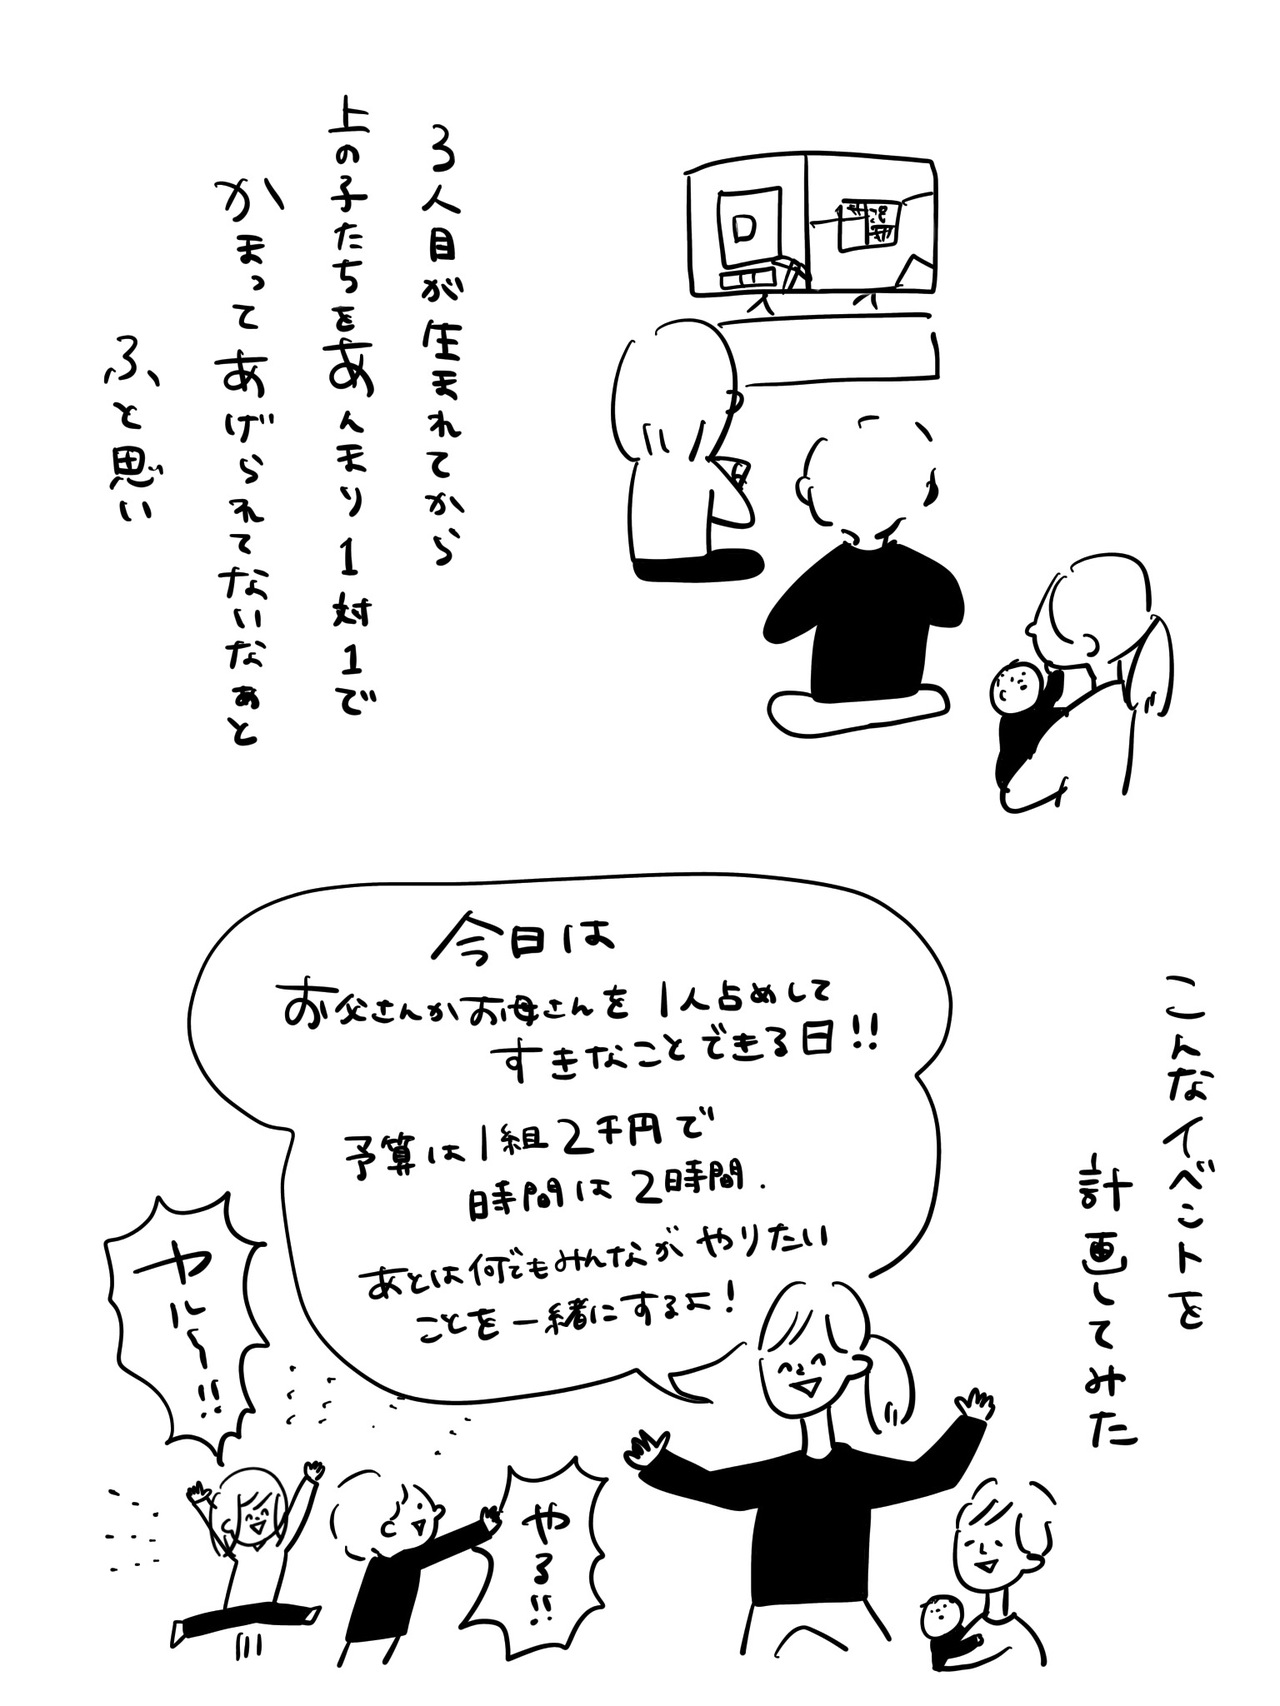 3人目が生まれてから
上の子たちをあんまり1対1で
かまってあげられてないなぁと
ふと思い
こんなイベントを
計画してみた
今日は
お父さんかお母さんを1人占めして
すきなことできる日!!
予算は1組2千円で
時間は2時間.
あとは何でもみんながやりたい
ことを一緒にするよ!
ヤル〜!!
やる!!